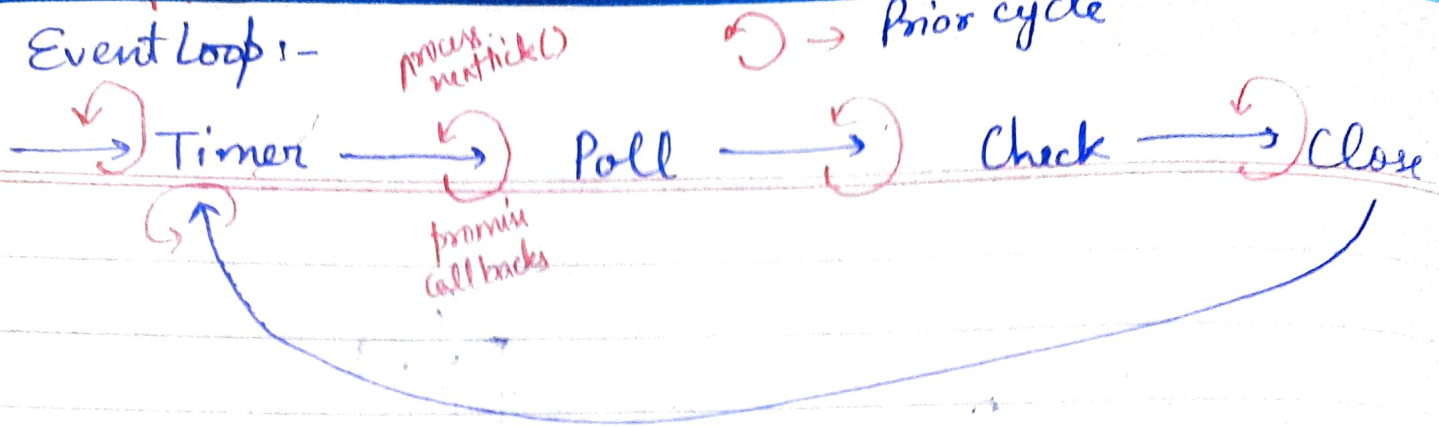 Event Loop :-
process.
nextTick()
→ Prior cycle
Timer → Poll → Check → Close
promise
callbacks